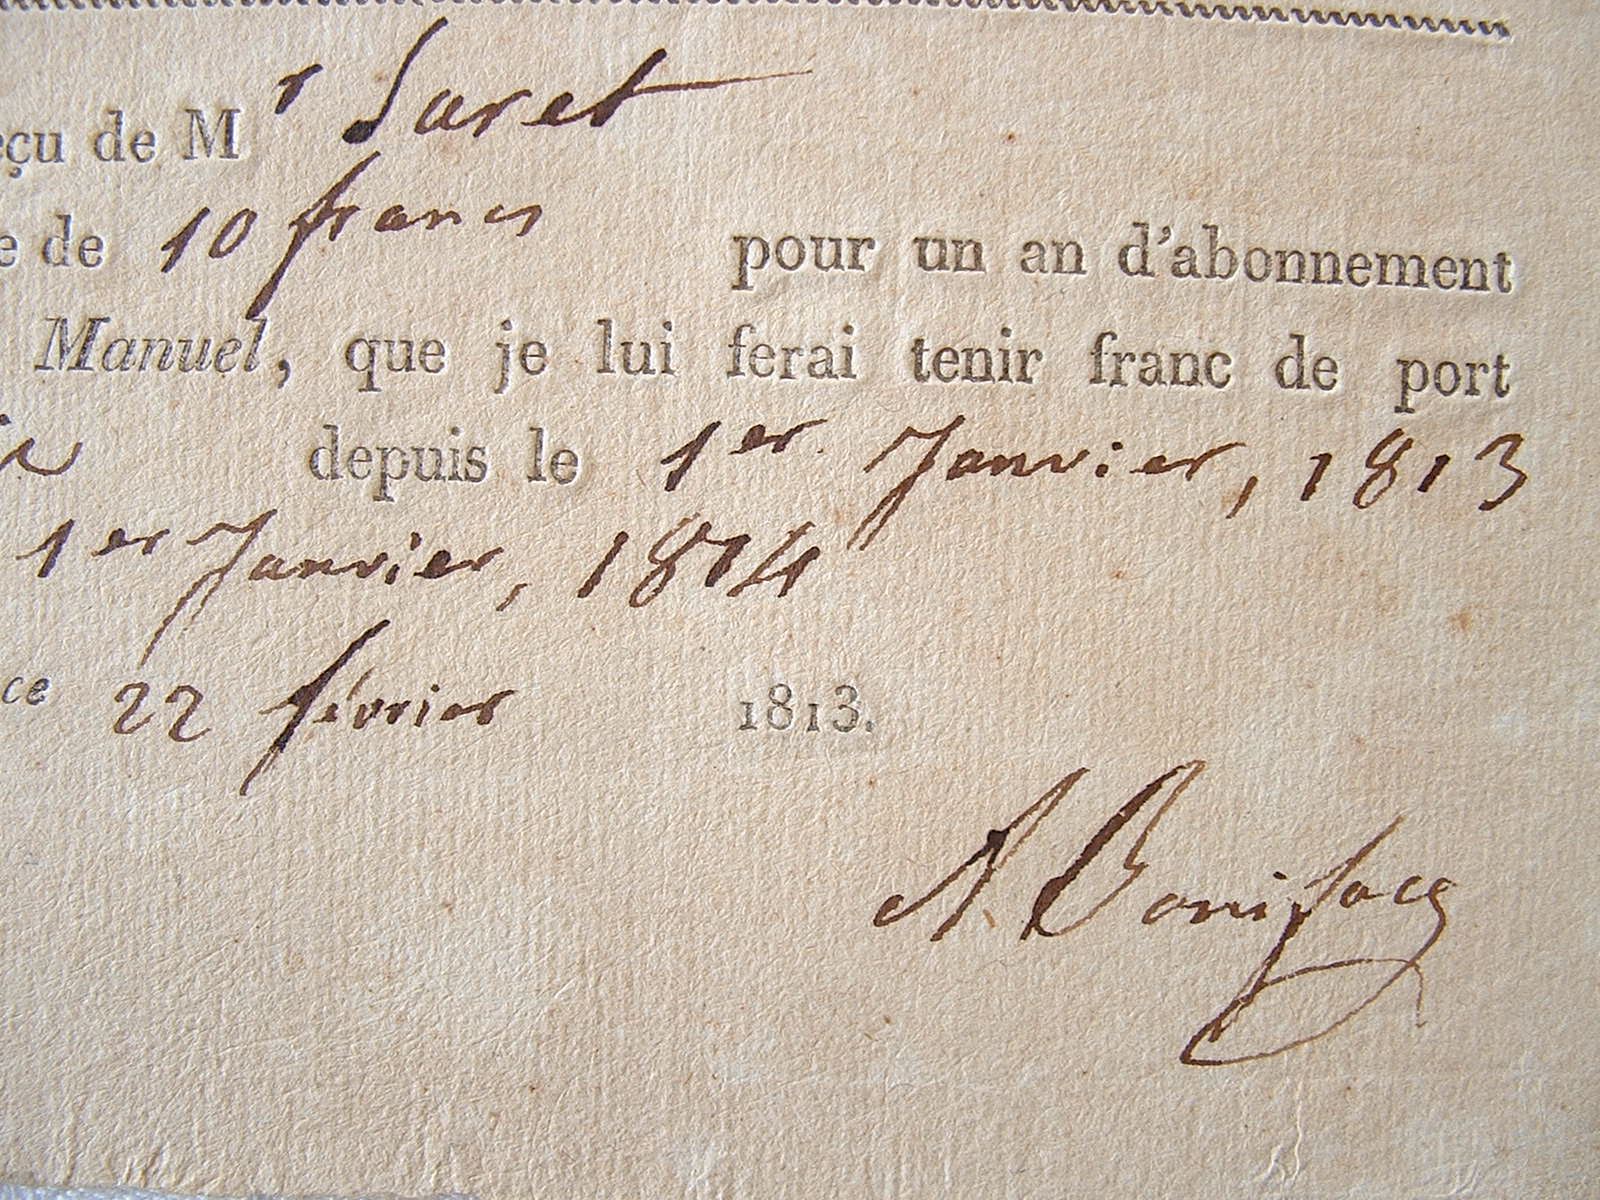 eçu de Mr Suret
e de 10 francs pour un an d'abonnement
Manuel, que je lui ferai tenir franc de port
depuis le 1er Janvier, 1813
1er Janvier, 1814
ce 22 février 1813.
A Bonifacy